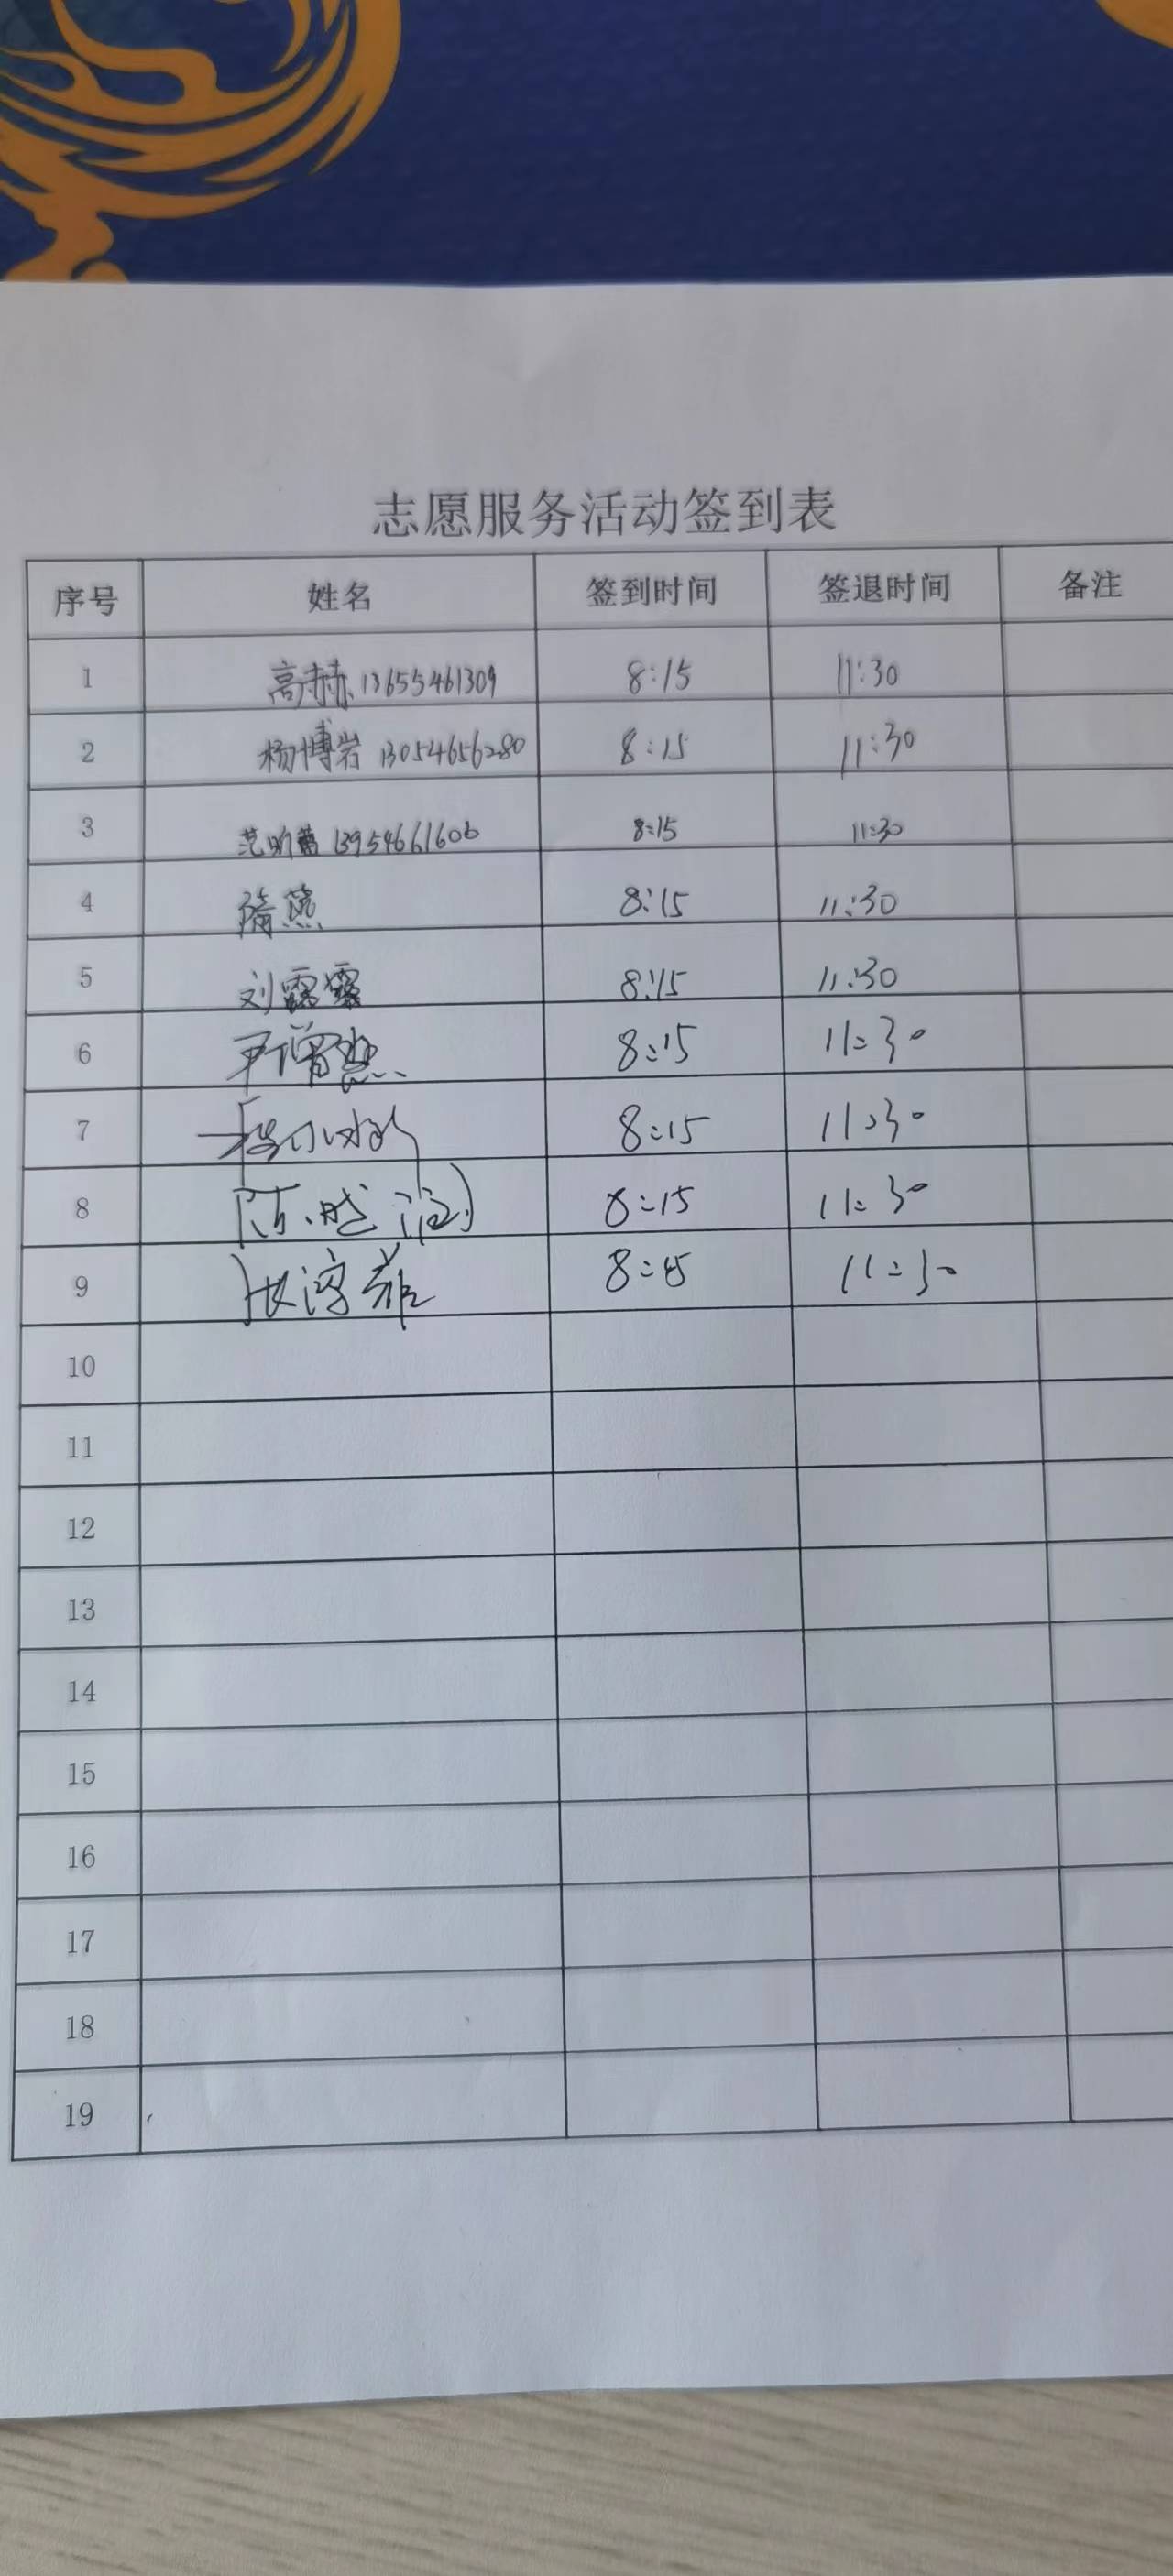 志愿服务活动签到表
序号 姓名 签到时间 签退时间 备注
1 高赫 13655461309 8:15 11:30
2 杨博岩 13054656280 8:15 11:30
3 范昕蕾 13954661606 8:15 11:30
4 隋燕 8:15 11:30
5 刘露露 8:15 11:30
6 8:15 11:30
7 8:15 11:30
8 陈 8:15 11:30
9 张淳菲 8:15 11:30
10
11
12
13
14
15
16
17
18
19